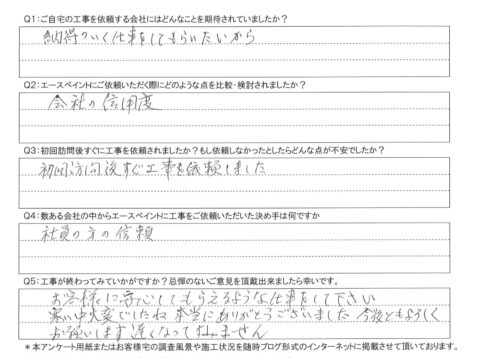 Q1:ご自宅の工事を依頼する会社にはどんなことを期待されていましたか?
納得のいく仕事をしてもらいたいから
Q2:エースペイントにご依頼いただく際にどのような点を比較・検討されましたか?
会社の信用度
Q3:初回訪問後すぐに工事を依頼されましたか?もし依頼しなかったとしたらどんな点が不安でしたか?
初回訪問後すぐ工事を依頼しました
Q4:数ある会社の中からエースペイントに工事をご依頼いただいた決め手は何ですか
社員の方の信頼
Q5:工事が終わってみていかがですか?忌憚のないご意見を頂戴出来ましたら幸いです。
お客様に安心してもらえるような仕事をして下さい
寒い中大変でしたね 本当にありがとうございました 今後ともよろしく
お願いします 遅くなってすみません
*本アンケート用紙またはお客様宅の調査風景や施工状況を随時ブログ形式のインターネットに掲載させて頂いております。